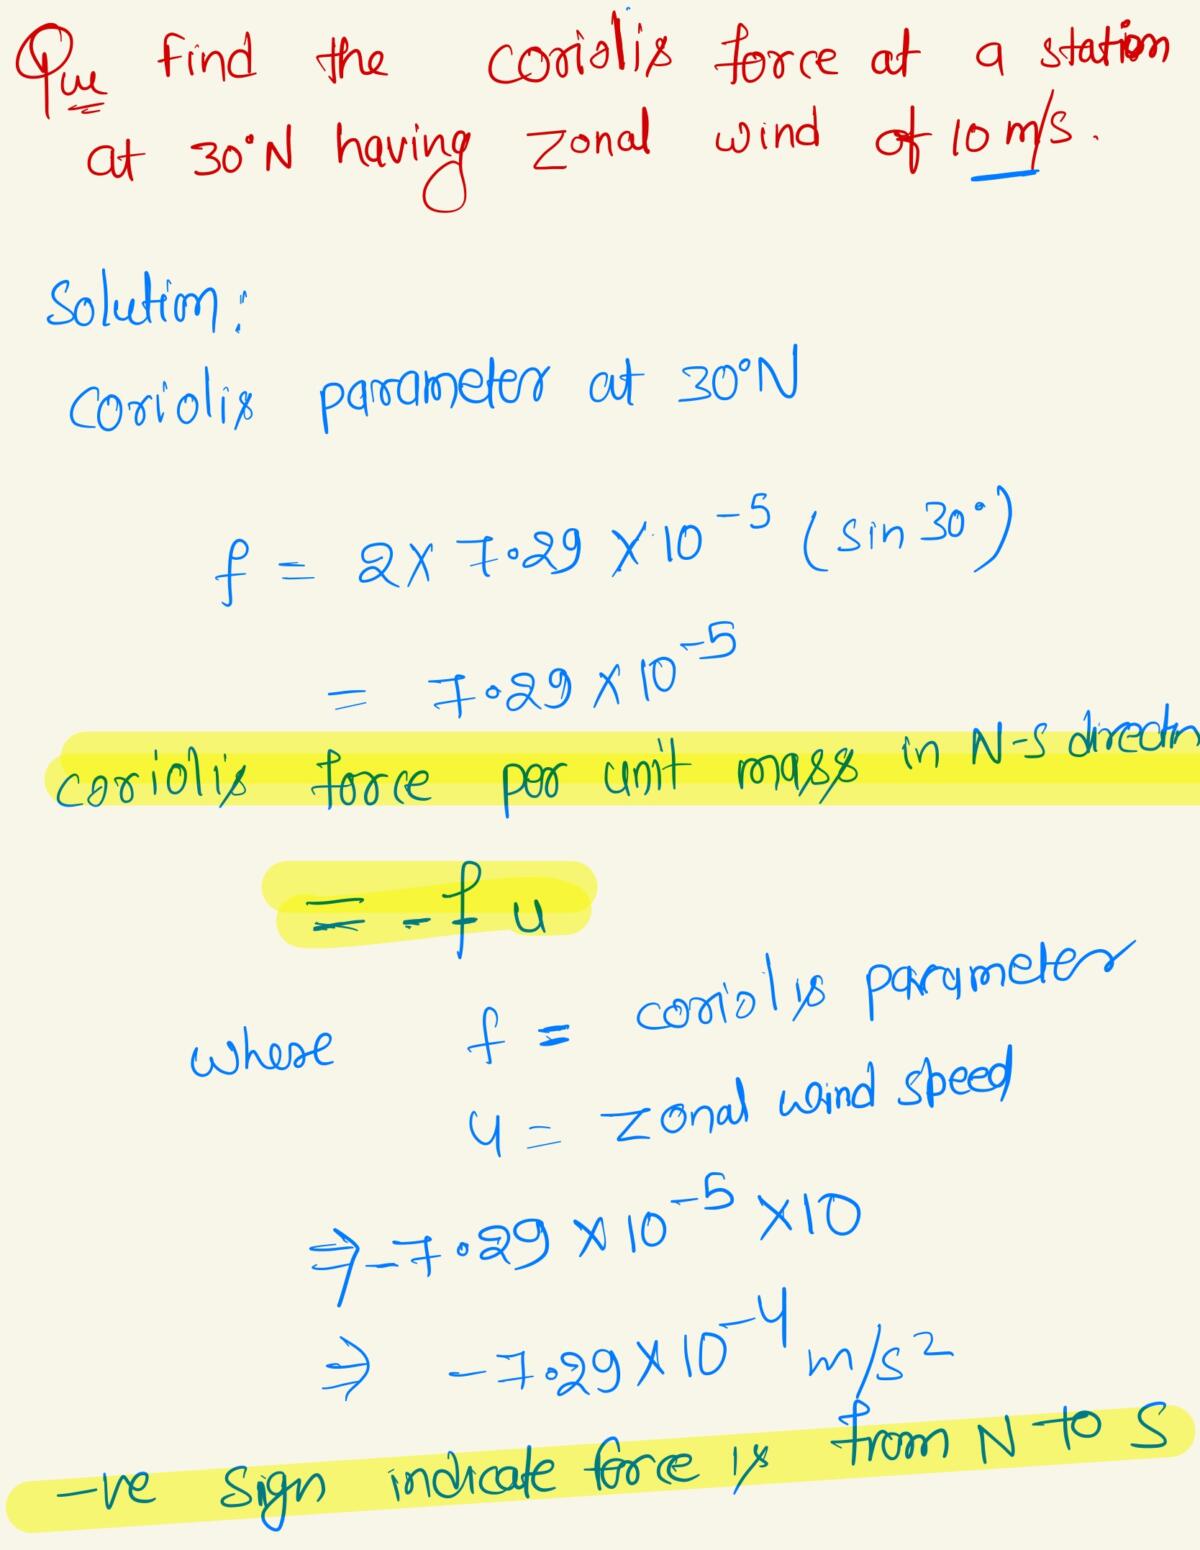 Que Find the coriolis force at a station
at 30°N having zonal wind of 10 m/s.
Solution:
Coriolis parameter at 30°N
f = 2 × 7.29 × 10⁻⁵ (sin 30°)
= 7.29 × 10⁻⁵
coriolis force per unit mass in N-S directn
= -f u
where f = coriolis parameter
u = zonal wind speed
⇒ -7.29 × 10⁻⁵ × 10
⇒ -7.29 × 10⁻⁴ m/s²
-ve sign indicate force is from N to S